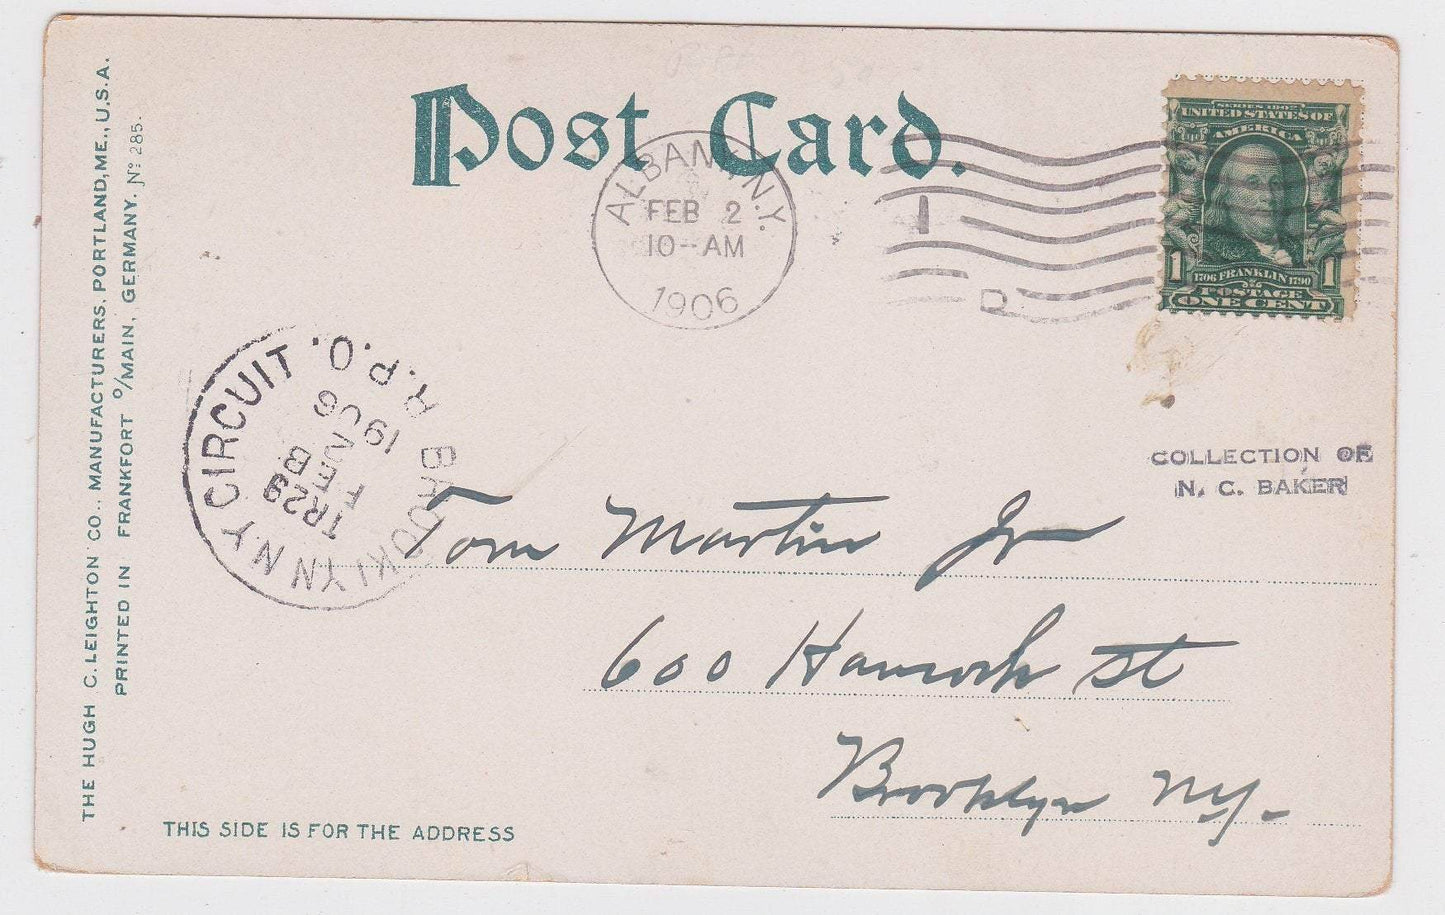 Post Card.
THE HUGH C. LEIGHTON CO., MANUFACTURERS, PORTLAND, ME., U.S.A.
PRINTED IN FRANKFORT º/MAIN, GERMANY. Nº 285.
ALBANY, N.Y.
FEB 2
10-AM
1906
SERIES 1902
UNITED STATES OF
AMERICA
1 1706 FRANKLIN 1790 1
POSTAGE
ONE CENT
D
COLLECTION OF
N. C. BAKER
BROOKLYN N.Y. CIRCUIT. R.P.O.
1906
FEB
Tom Martin Jr
600 Hancock St
Brooklyn NY-
THIS SIDE IS FOR THE ADDRESS